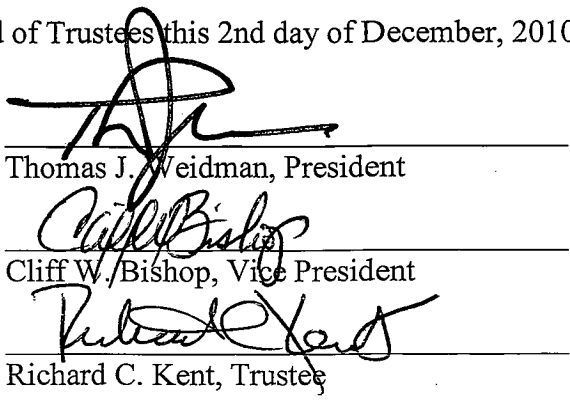 d of Trustees this 2nd day of December, 2010
Thomas J. Weidman, President
Cliff W. Bishop
Cliff W. Bishop, Vice President
Richard C Kent
Richard C. Kent, Trustee